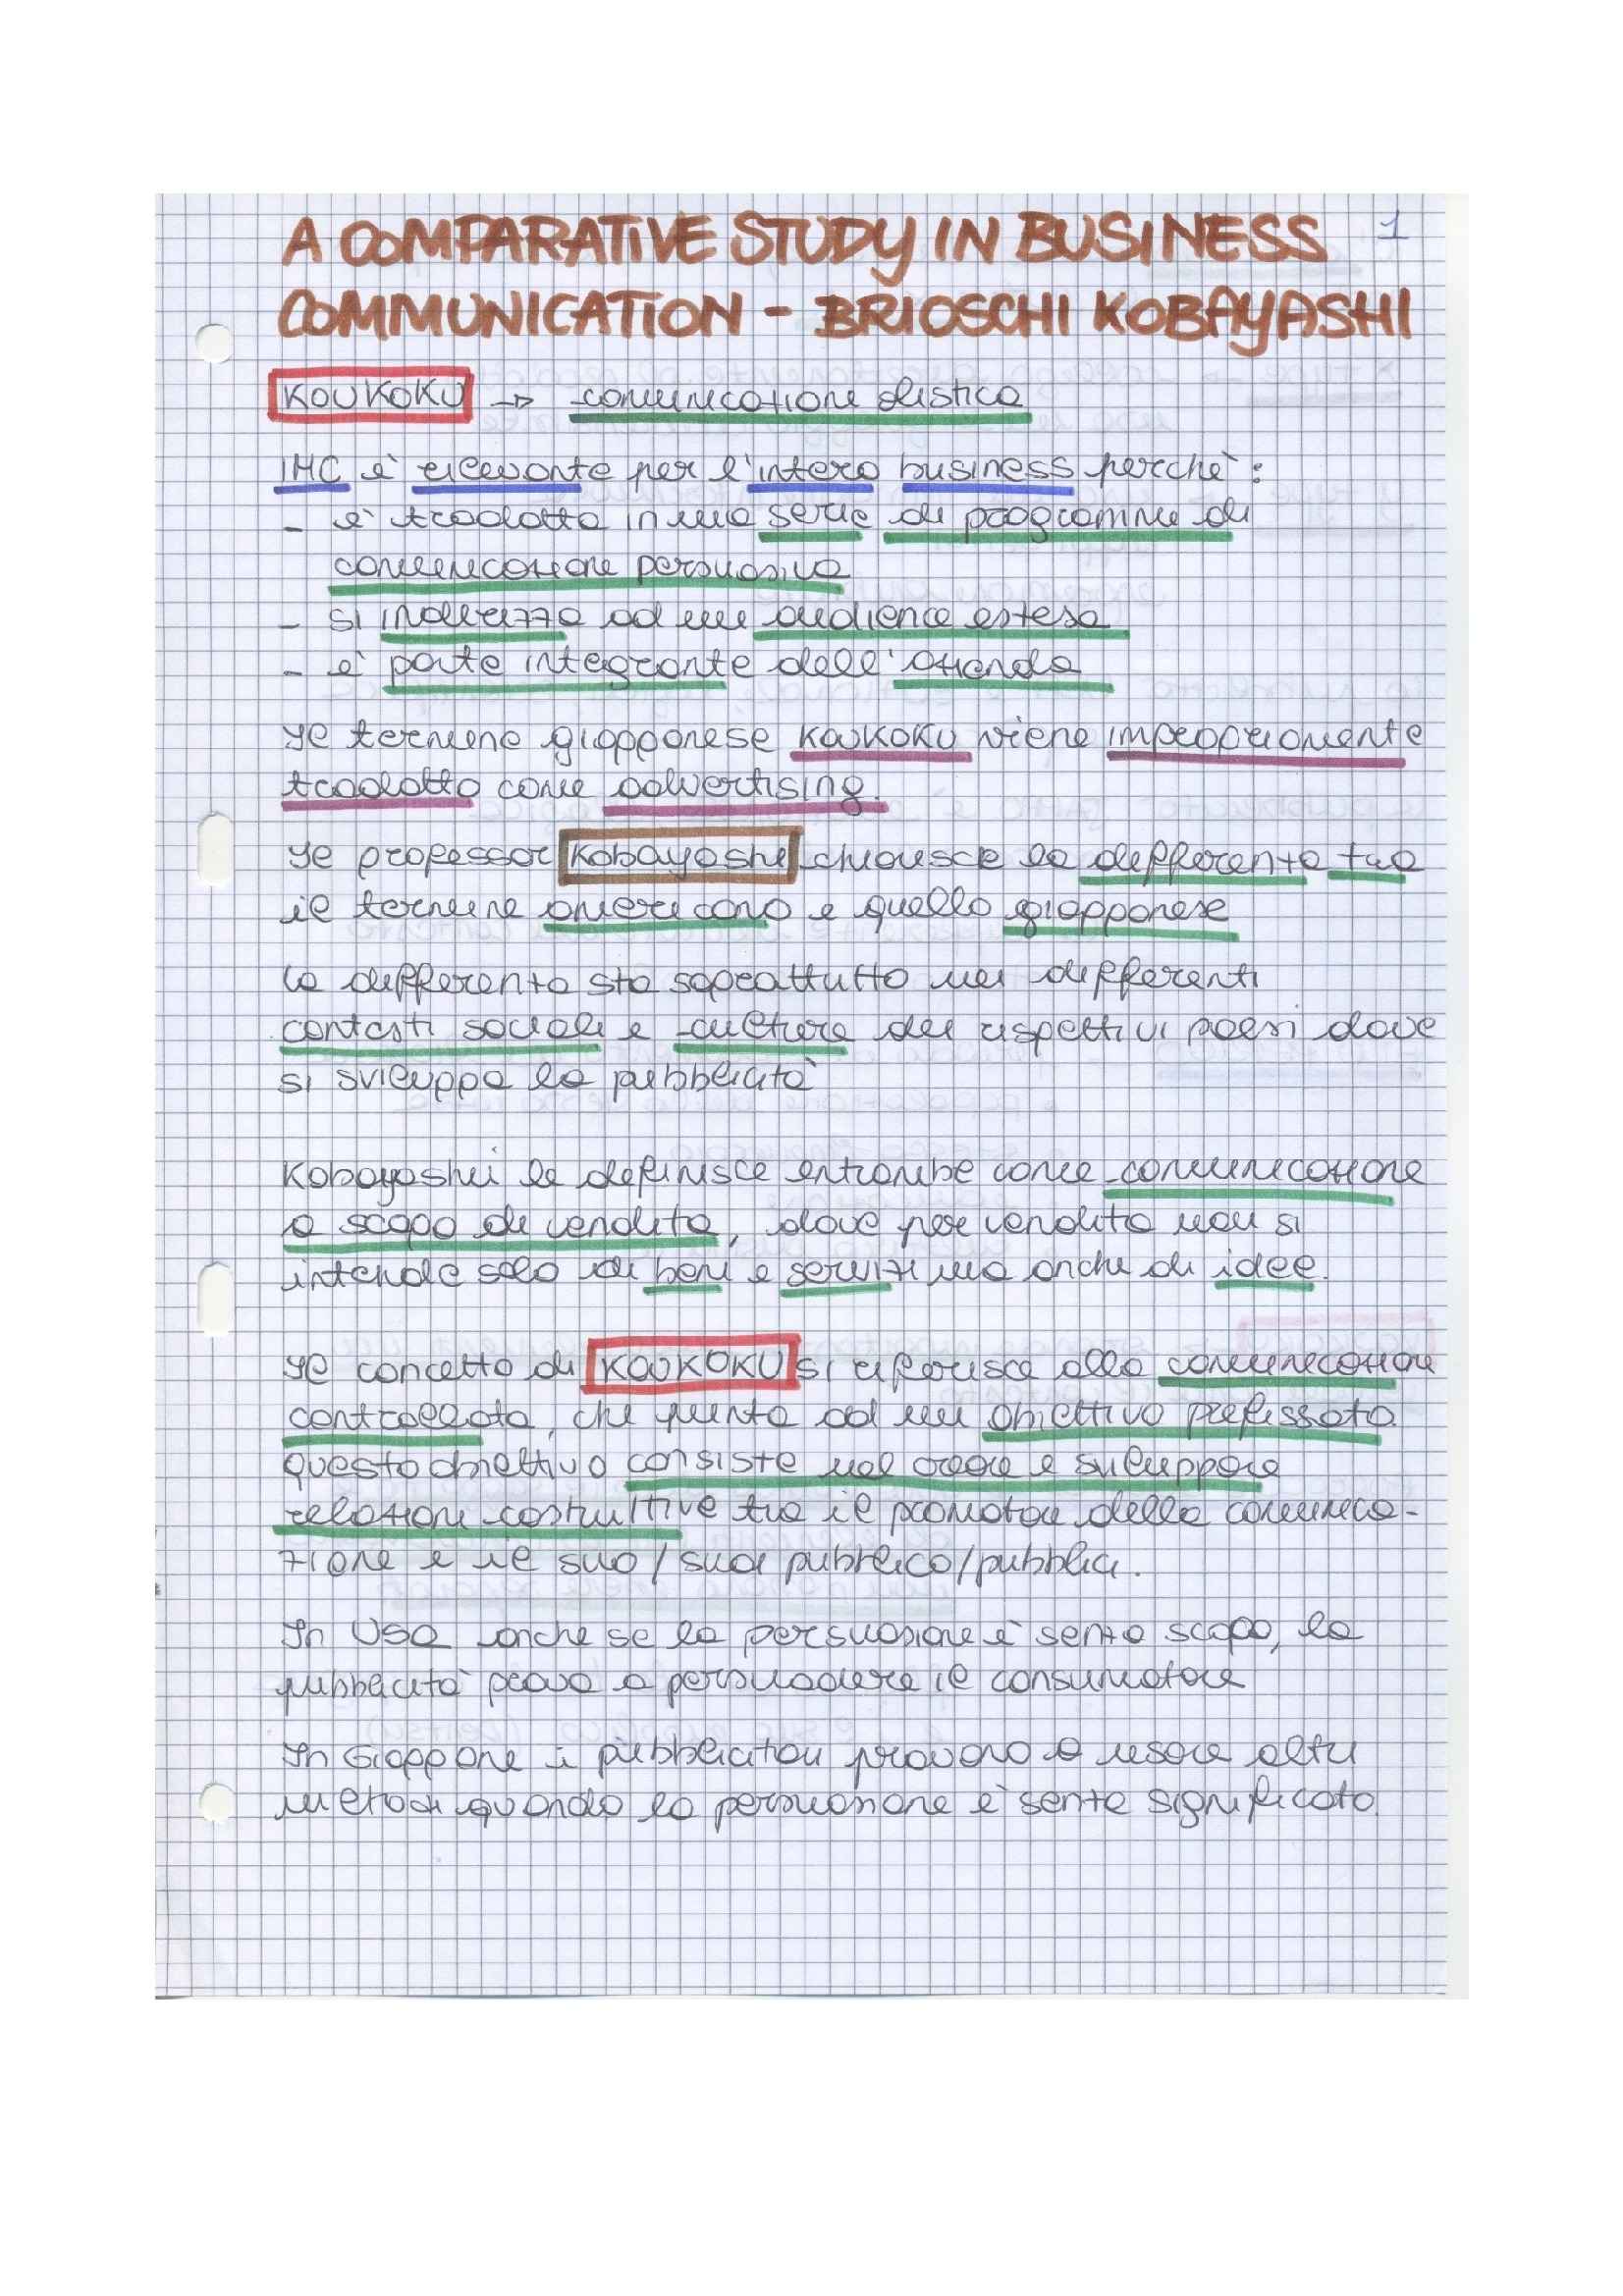 A COMPARATIVE STUDY IN BUSINESS 1
COMMUNICATION - BRIOSCHI KOBAYASHI
KOUKOKU → comunicazione olistica
IMC è rilevante per l'intero business perchè:
- è tradotta in una serie di programmi di
comunicazione persuasiva
- si indirizza ad un audience estesa
- è parte integrante dell'azienda
Il termine giapponese KOUKOKU viene impropriamente
tradotto come advertising.
Il professor Kobayashi chiarisce la differenza tra
il termine americano e quello giapponese
la differenza sta soprattutto nei differenti
contesti sociali e cultura dei rispettivi paesi dove
si sviluppa la pubblicità
Kobayashi le definisce entrambe come comunicazione
a scopo di vendita, dove per vendita non si
intende solo di beni e servizi ma anche di idee.
Il concetto di KOUKOKU si riferisce alla comunicazione
controllata, che punta ad un obiettivo prefissato
questo obiettivo consiste nel creare e sviluppare
relazioni costruttive tra il promotore della comunica-
zione e il suo/suoi pubblico/pubblici.
In USA anche se la persuasione è senza scopo, la
pubblicità prova a persuadere il consumatore
In Giappone i pubblicitari provano a usare altri
metodi quando la persuasione è senza significato.